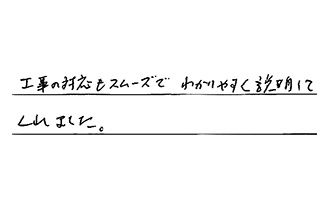 工事の対応もスムーズで わかりやすく説明して
くれました。